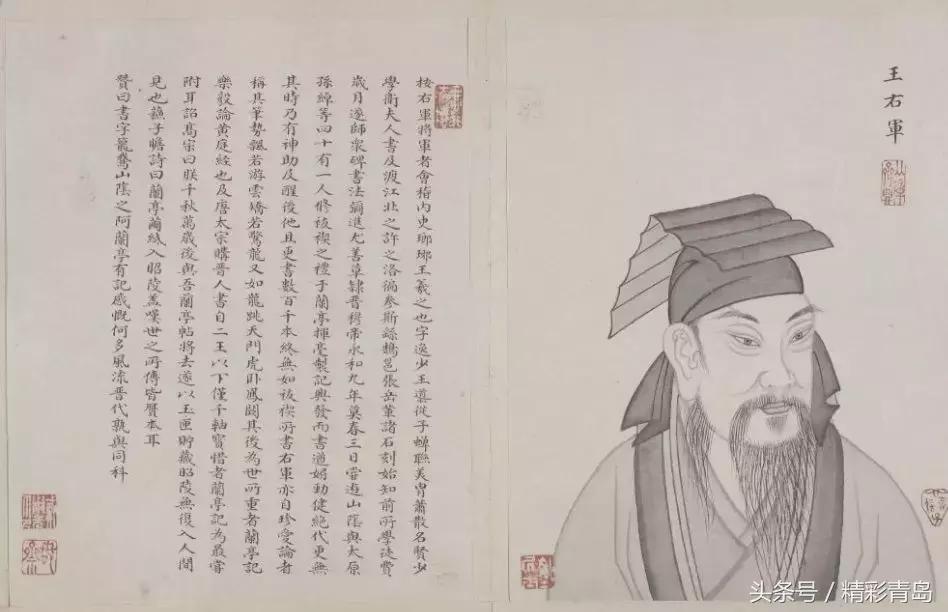 王右軍
按右軍將軍者會稽內史瑯琊王羲之也字逸少王導從子蟬聯美胄蕭散名賢少
學衛夫人書及渡江北之許之洛徧參斯繇鵠邕張岳華諸石刻始知前所學徒費
歲月遂師衆碑書法彌進尤善草隸晉穆帝永和九年莫春三日嘗遊山蔭與太原
孫綽等四十有一人修祓禊之禮于蘭亭揮毫製記興發而書遒媚勁健絕代更無
其時乃有神助及醒後他日更書數百千本終無如祓禊所書右軍亦自珍愛論者
稱其筆勢飄若游雲矯若驚龍又如龍跳天門虎卧鳳闕其後為世所重者蘭亭記
樂毅論黃庭經也及唐太宗購晉人書自二王以下僅千軸寶惜者蘭亭記為最嘗
附耳詔高宗曰朕千秋萬歲後與吾蘭亭帖將去遂以玉匣貯藏昭陵無復入人間
見也蘇子瞻詩曰蘭亭繭紙入昭陵蓋嘆世之所傳皆贋本耳
贊曰書字籠鵞山陰之阿蘭亭有記感慨何多風流晉代孰與同科
头条号 / 精彩青岛